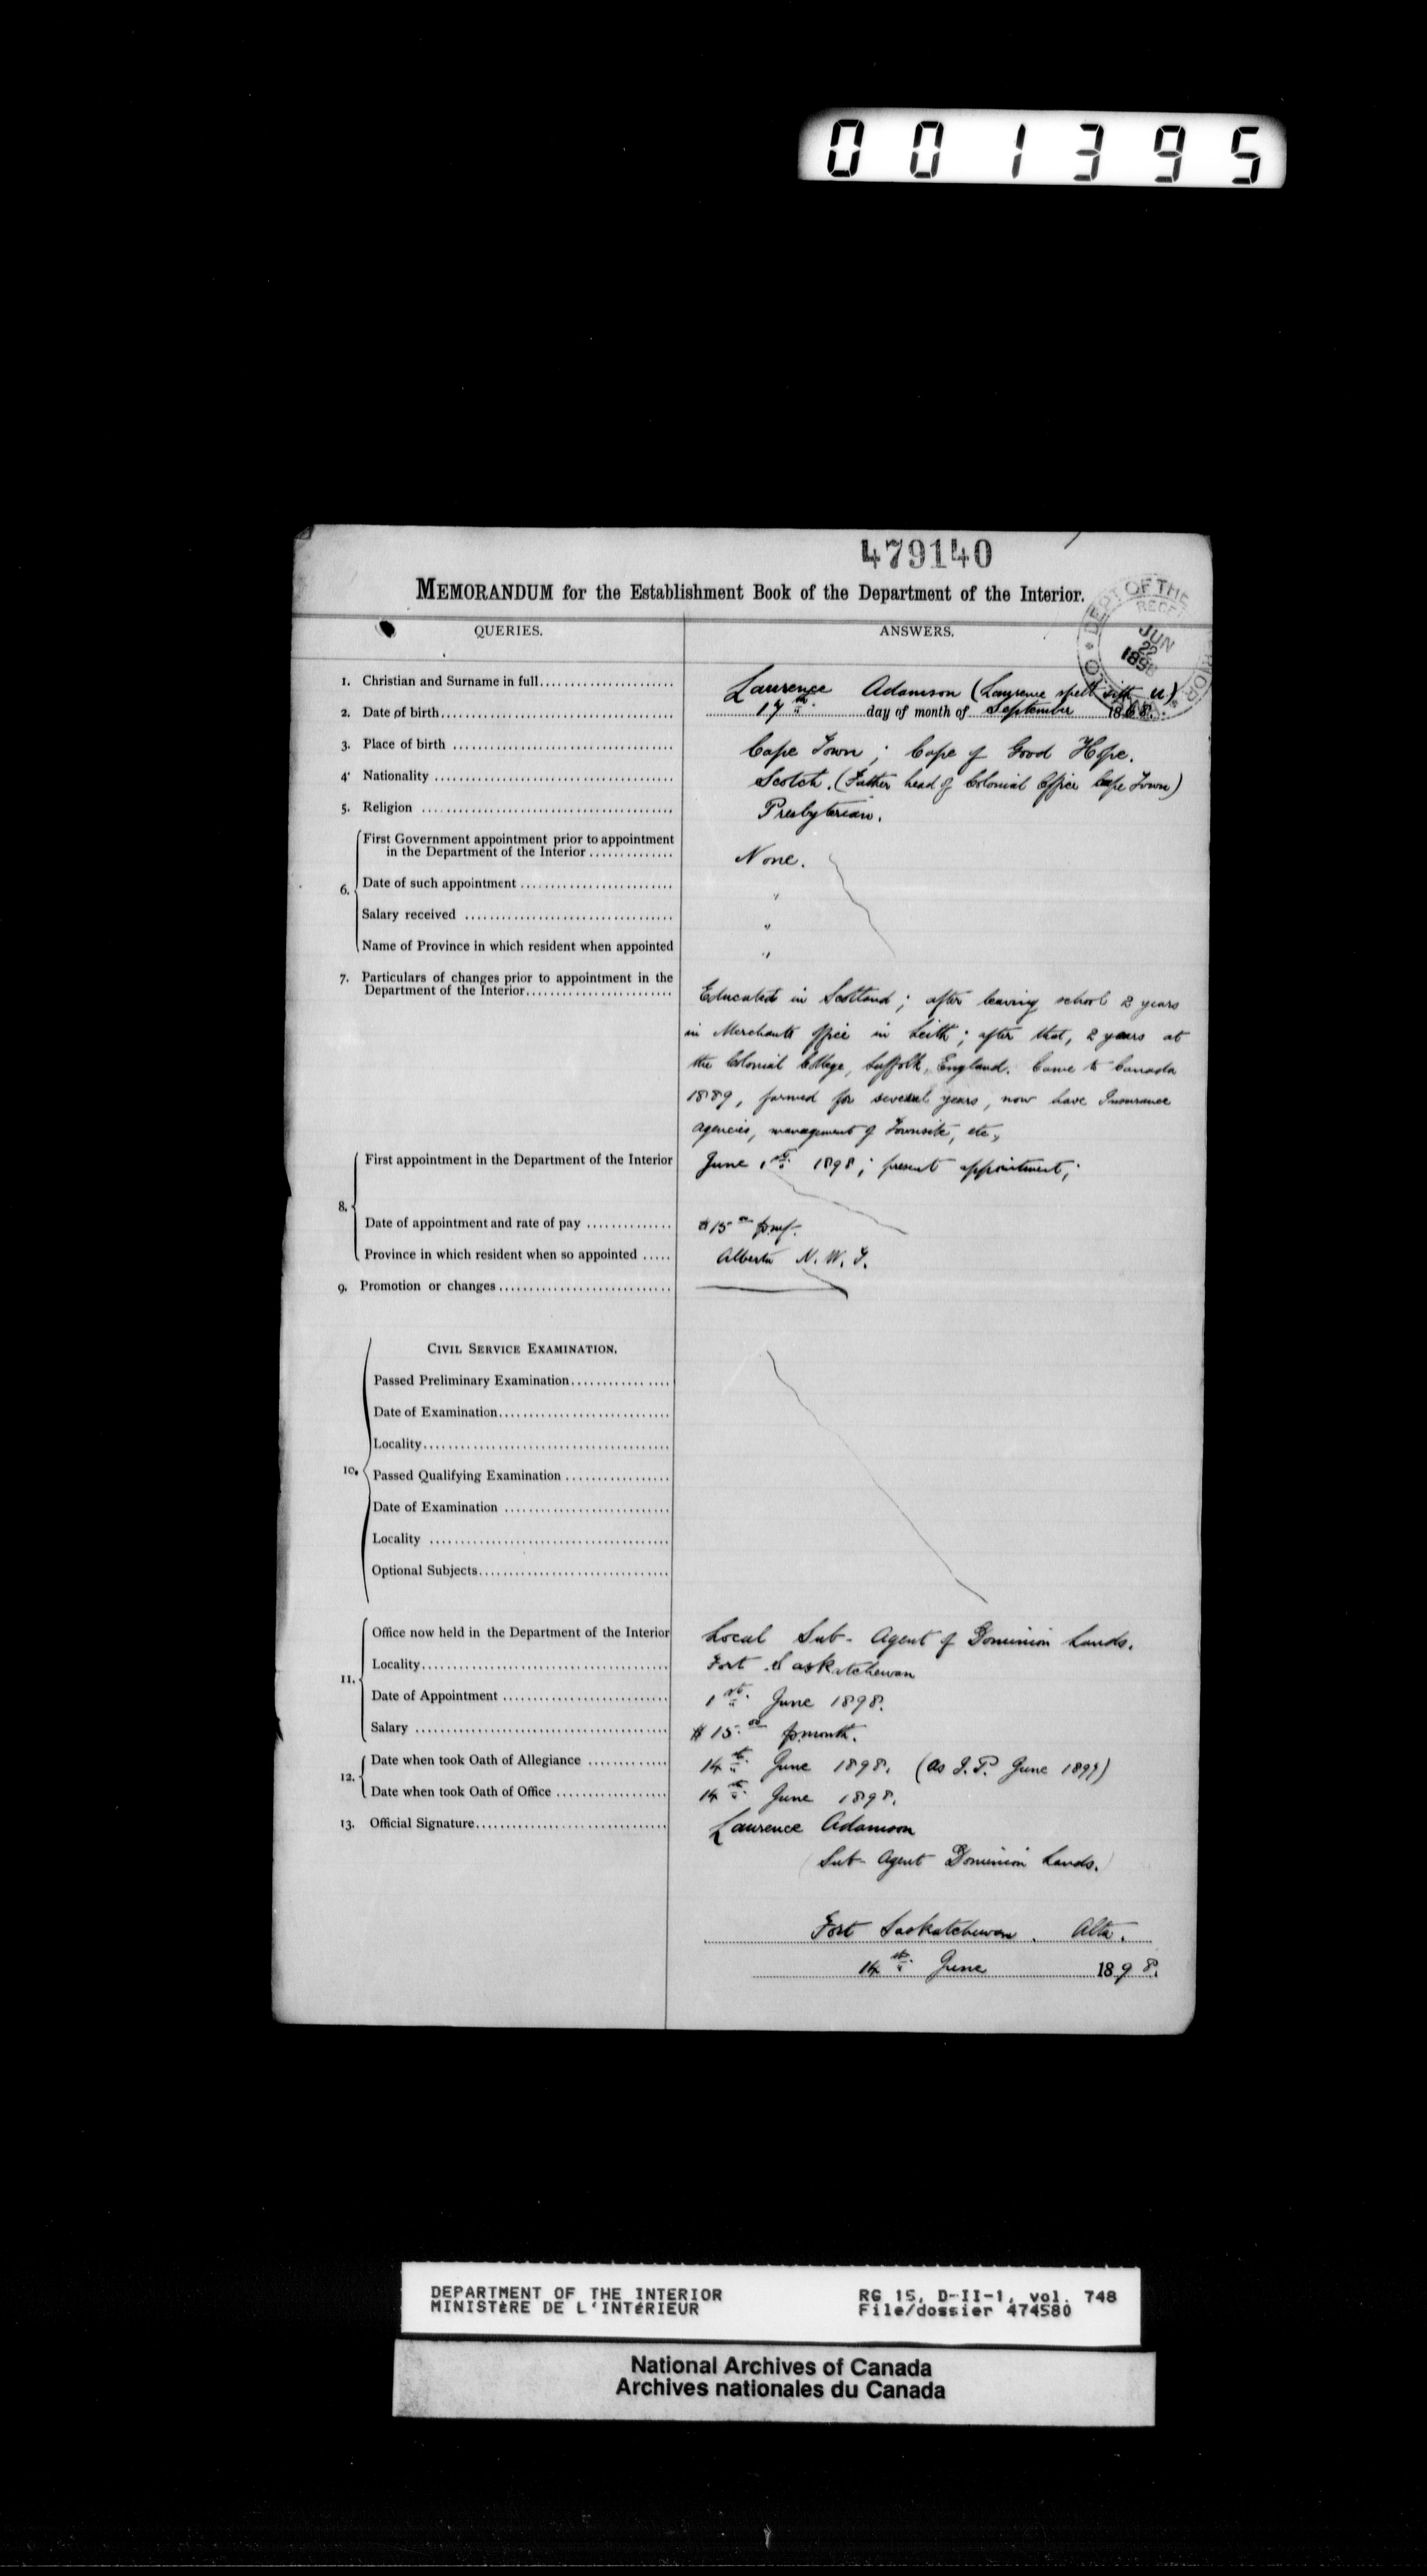 001395
479140
MEMORANDUM for the Establishment Book of the Department of the Interior.
DEPT OF THE INTERIOR
JUN
22
1898
QUERIES. ANSWERS.
1. Christian and Surname in full Laurence Adamson (Laurence spelt with u)
2. Date of birth 17th day of month of September 1868.
3. Place of birth Cape Town; Cape of Good Hope.
4. Nationality Scotch. (Father head of Colonial Office Cape Town)
5. Religion Presbyterian.
6. First Government appointment prior to appointment
in the Department of the Interior None.
Date of such appointment "
Salary received "
Name of Province in which resident when appointed "
7. Particulars of changes prior to appointment in the
Department of the Interior Educated in Scotland; after leaving school 2 years
in Merchants office in Leith; after that, 2 years at
the Colonial College, Suffolk, England. Came to Canada
1889, farmed for several years, now have Insurance
agencies, management of Townsite, etc,
8. First appointment in the Department of the Interior June 1st 1898; present appointment;
Date of appointment and rate of pay $15.00
Province in which resident when so appointed Alberta N. W. T.
9. Promotion or changes
CIVIL SERVICE EXAMINATION.
10. Passed Preliminary Examination
Date of Examination
Locality
Passed Qualifying Examination
Date of Examination
Locality
Optional Subjects
11. Office now held in the Department of the Interior Local Sub-Agent of Dominion Lands.
Locality Fort Saskatchewan
Date of Appointment 1st June 1898.
Salary $15.00 p month.
12. Date when took Oath of Allegiance 14th June 1898. (as J.P. June 1897)
Date when took Oath of Office 14th June 1898.
13. Official Signature Laurence Adamson
(Sub-Agent Dominion Lands.)
Fort Saskatchewan. Alta.
14th June 1898.
DEPARTMENT OF THE INTERIOR RG 15, D-II-1, vol. 748
MINISTèRE DE L'INTéRIEUR File/dossier 474580
National Archives of Canada
Archives nationales du Canada